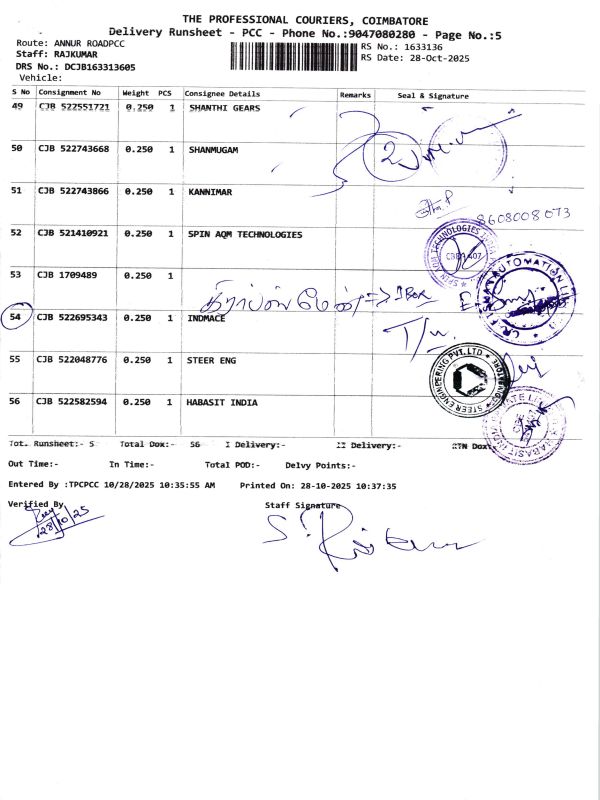 THE PROFESSIONAL COURIERS, COIMBATORE
Delivery Runsheet - PCC - Phone No.:9047080280 - Page No.:5
Route: ANNUR ROADPCC
Staff: RAJKUMAR
DRS No.: DCJB163313605
Vehicle:
RS No.: 1633136
RS Date: 28-Oct-2025
S No Consignment No Weight PCS Consignee Details Remarks Seal & Signature
49 CJB 522551721 0.250 1 SHANTHI GEARS
50 CJB 522743668 0.250 1 SHANMUGAM
51 CJB 522743866 0.250 1 KANNIMAR
8608008073
52 CJB 521410921 0.250 1 SPIN AQM TECHNOLOGIES
53 CJB 1709489 0.250 1
=> 1 Box
54 CJB 522695343 0.250 1 INDMACE
55 CJB 522048776 0.250 1 STEER ENG
STEER ENGINEERING PVT. LTD
56 CJB 522582594 0.250 1 HABASIT INDIA
Tot. Runsheet:- 5 Total Dox:- 56 I Delivery:- II Delivery:- RTN Dox:-
Out Time:- In Time:- Total POD:- Delvy Points:-
Entered By :TPCPCC 10/28/2025 10:35:55 AM Printed On: 28-10-2025 10:37:35
Verified By Staff Signature
28/10/25